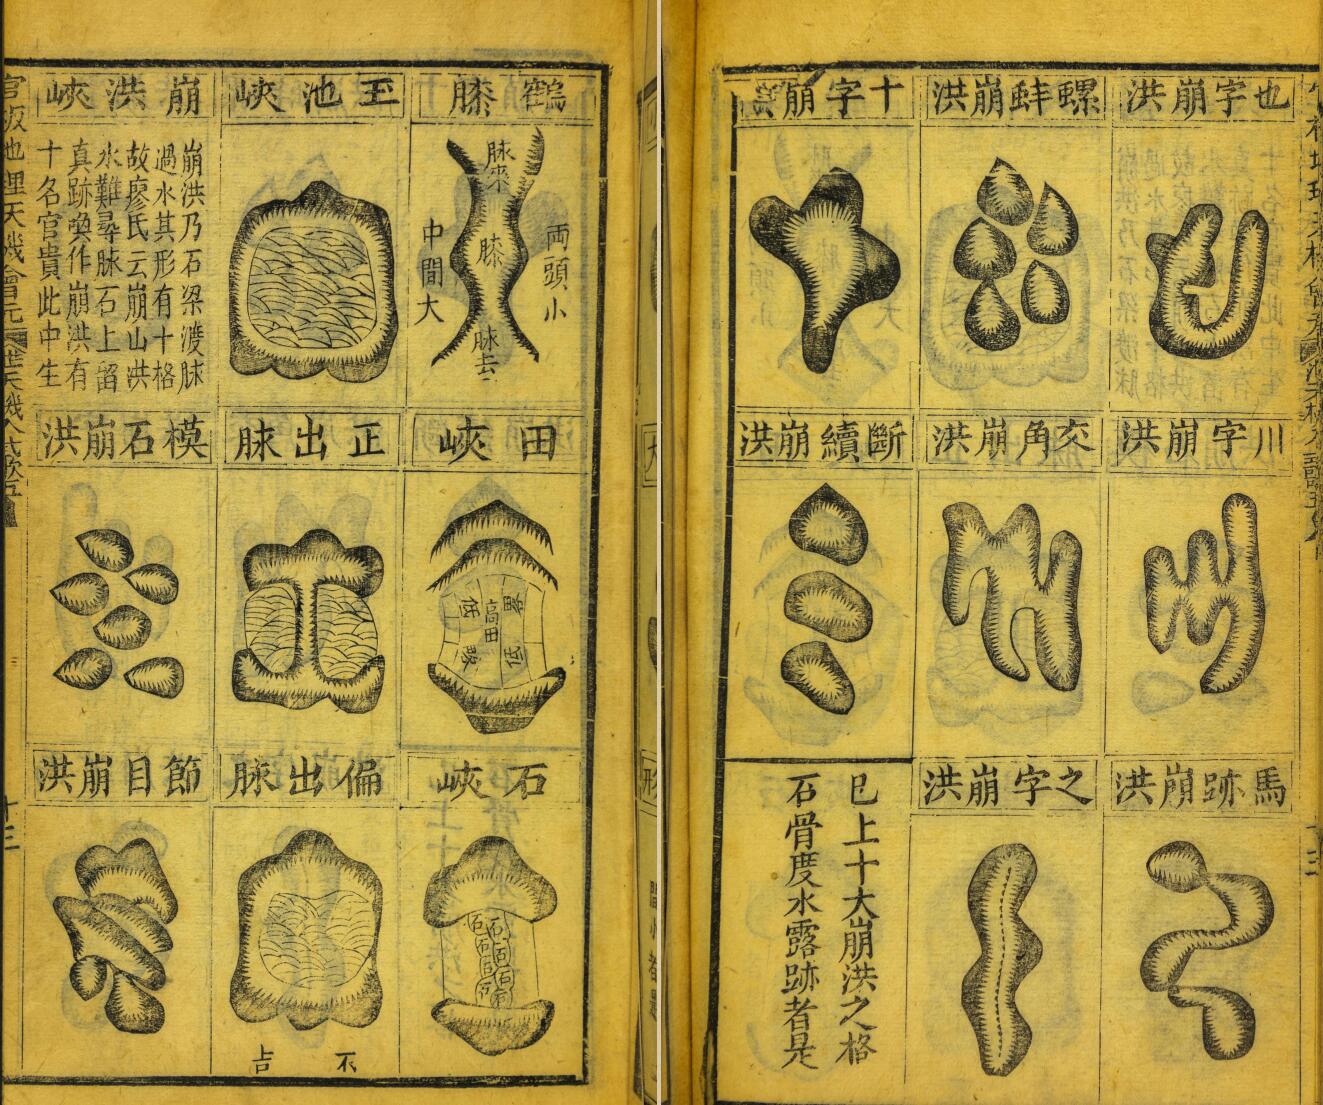 鶴膝
脉來
膝
脉去
両頭小
中間大
田峽
高田
低
石峽
玉池峽
正出脉
偏出脉
不吉
崩洪峽
崩洪乃石梁渡脉
過水其形有十格
故廖氏云崩山洪
水難尋脉石上留
真跡喚作崩洪有
十名官貴此中生
模石崩洪
節目崩洪
官板地理天機會元
十三
也字崩洪
川字崩洪
馬跡崩洪
螺蚌崩洪
交角崩洪
之字崩洪
十字崩洪
斷續崩洪
已上十大崩洪之格
石骨度水露跡者是